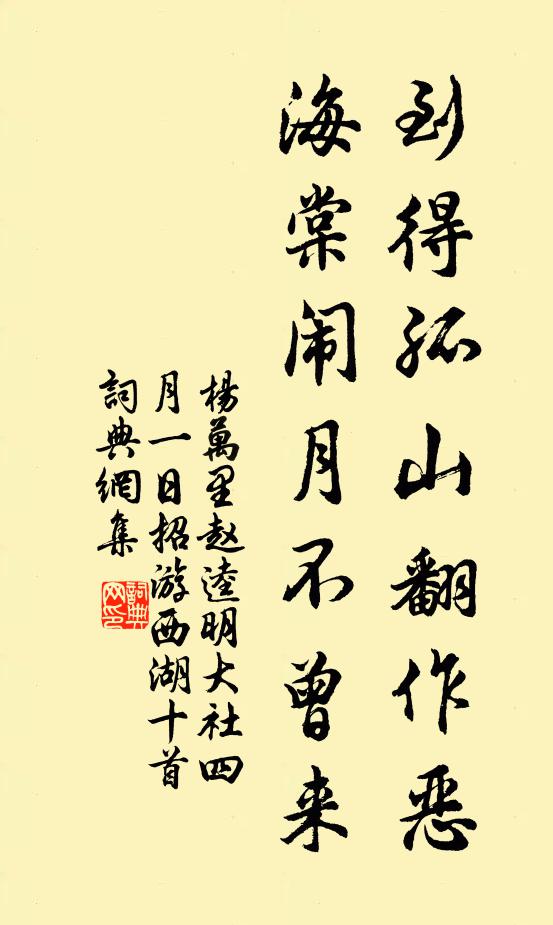 到得孤山翻作恶
海棠闹月不曾来
楊萬里赵逵明大社四
月一日招游西湖十首
詞典網集
詞典
网印